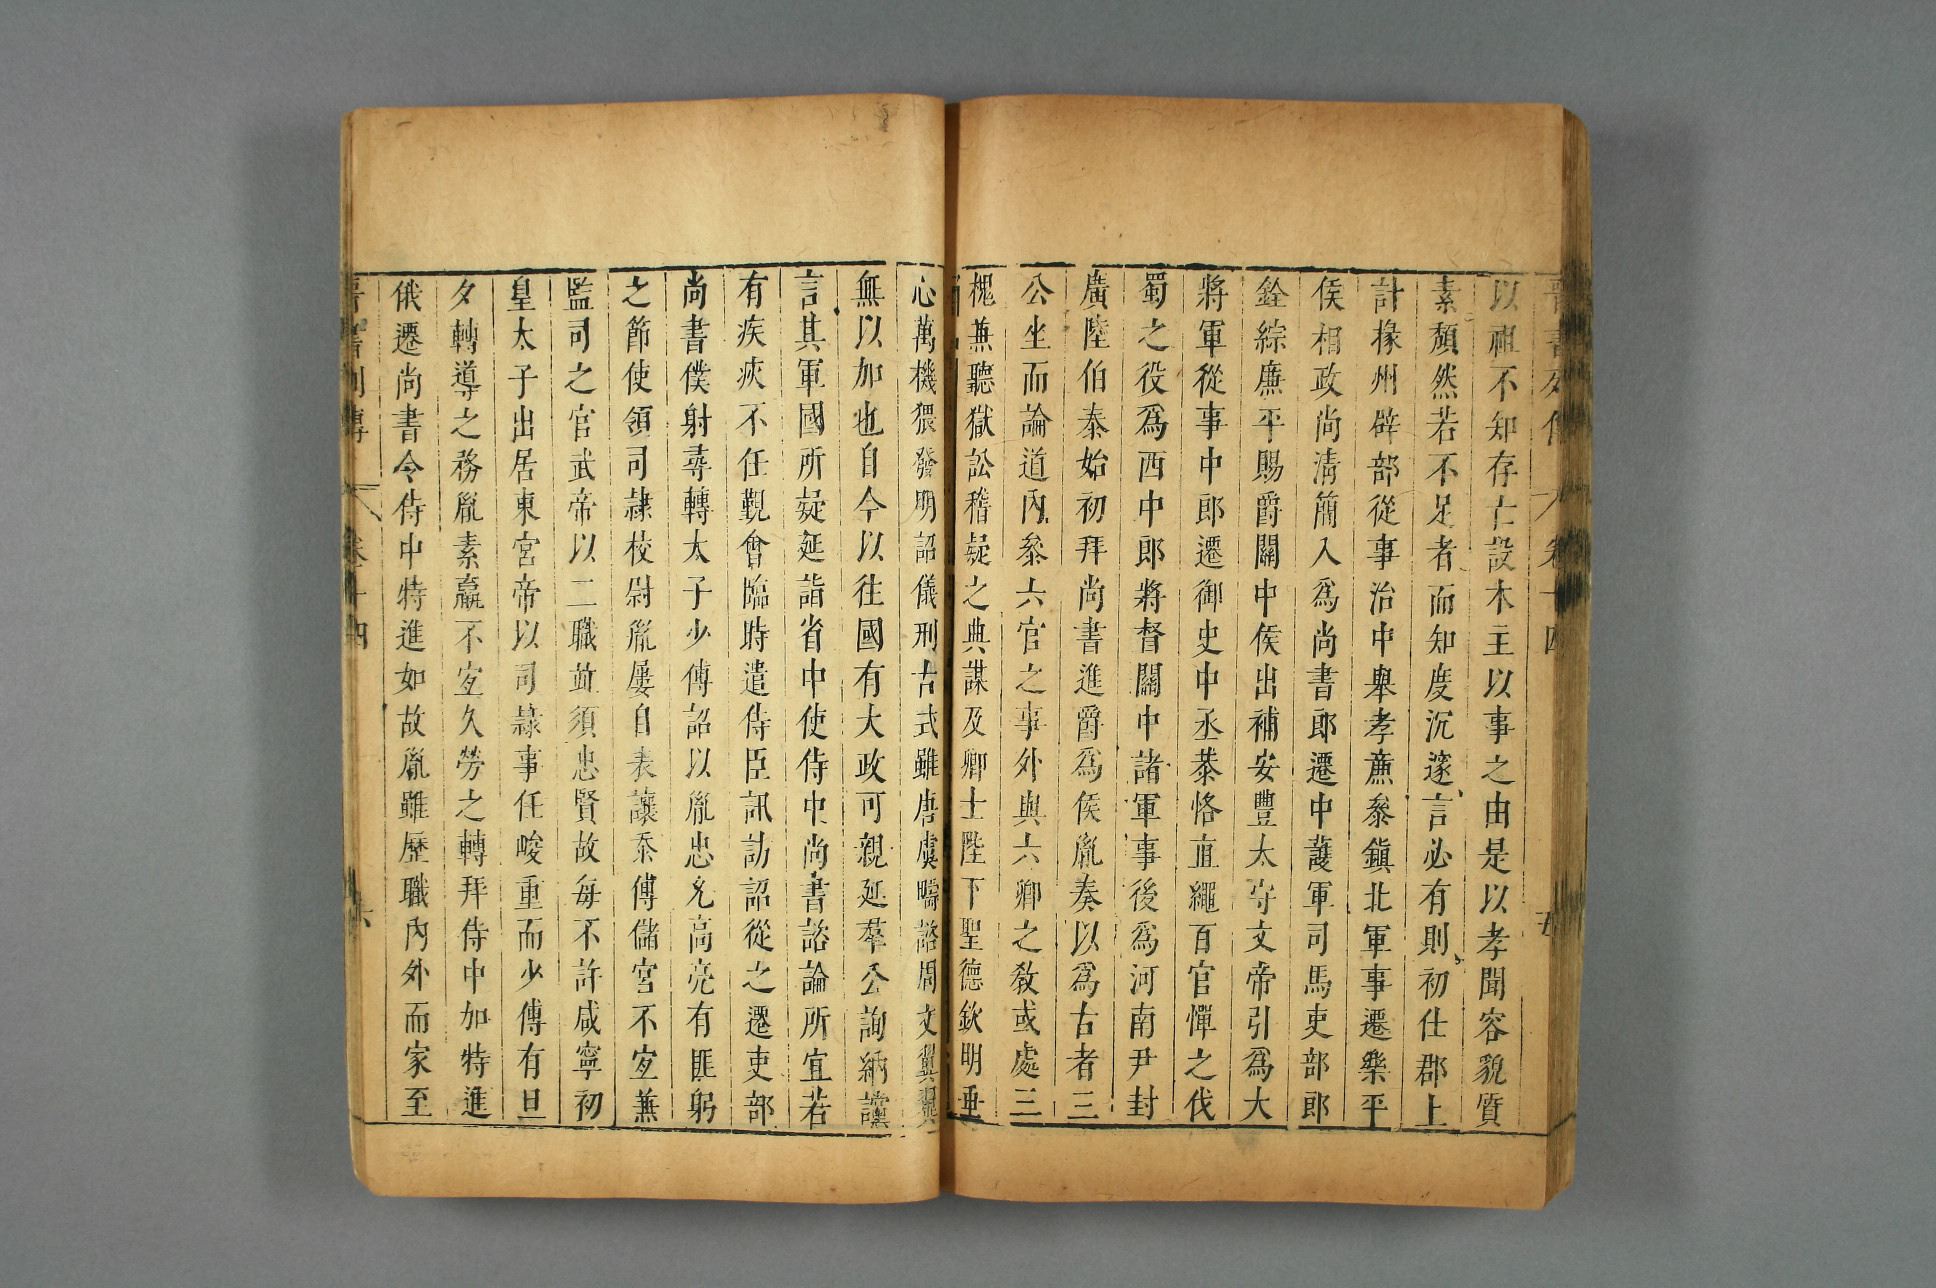 晉書列傳 卷十四 五
以祖不知存亡設木主以事之由是以孝聞容貌質
素頹然若不足者而知度沉邃言必有則初仕郡上
計掾州辟部從事治中舉孝亷叅鎮北軍事遷樂平
侯相政尚清簡入爲尚書郎遷中護軍司馬吏部郎
銓綜廉平賜爵關中侯出補安豐太守文帝引爲大
將軍從事中郎遷御史中丞恭恪直繩百官憚之伐
蜀之役爲西中郎將督關中諸軍事後爲河南尹封
廣陸伯泰始初拜尚書進爵爲侯胤奏以爲古者三
公坐而論道內叅六官之事外與六卿之教或處三
槐兼聽獄訟稽疑之典謀及卿士陛下聖德欽明垂
心萬機猥發明詔儀刑古式雖唐虞疇諮周文翼翼
無以加也自今以往國有大政可親延羣公詢納讜
言其軍國所疑延詣省中使侍中尚書諮論所宜若
有疾疢不任覲會臨時遣侍臣訊訪詔從之遷吏部
尚書僕射尋轉太子少傅詔以胤忠允高亮有匪躬
之節使領司隷校尉胤屢自表讓忝傅儲宮不宜兼
監司之官武帝以二職並須忠賢故每不許咸寧初
皇太子出居東宮帝以司隷事任峻重而少傅有旦
夕轉導之務胤素羸不宜久勞之轉拜侍中加特進
俄遷尚書令侍中特進如故胤雖歷職內外而家至
晉書列傳 卷十四 六